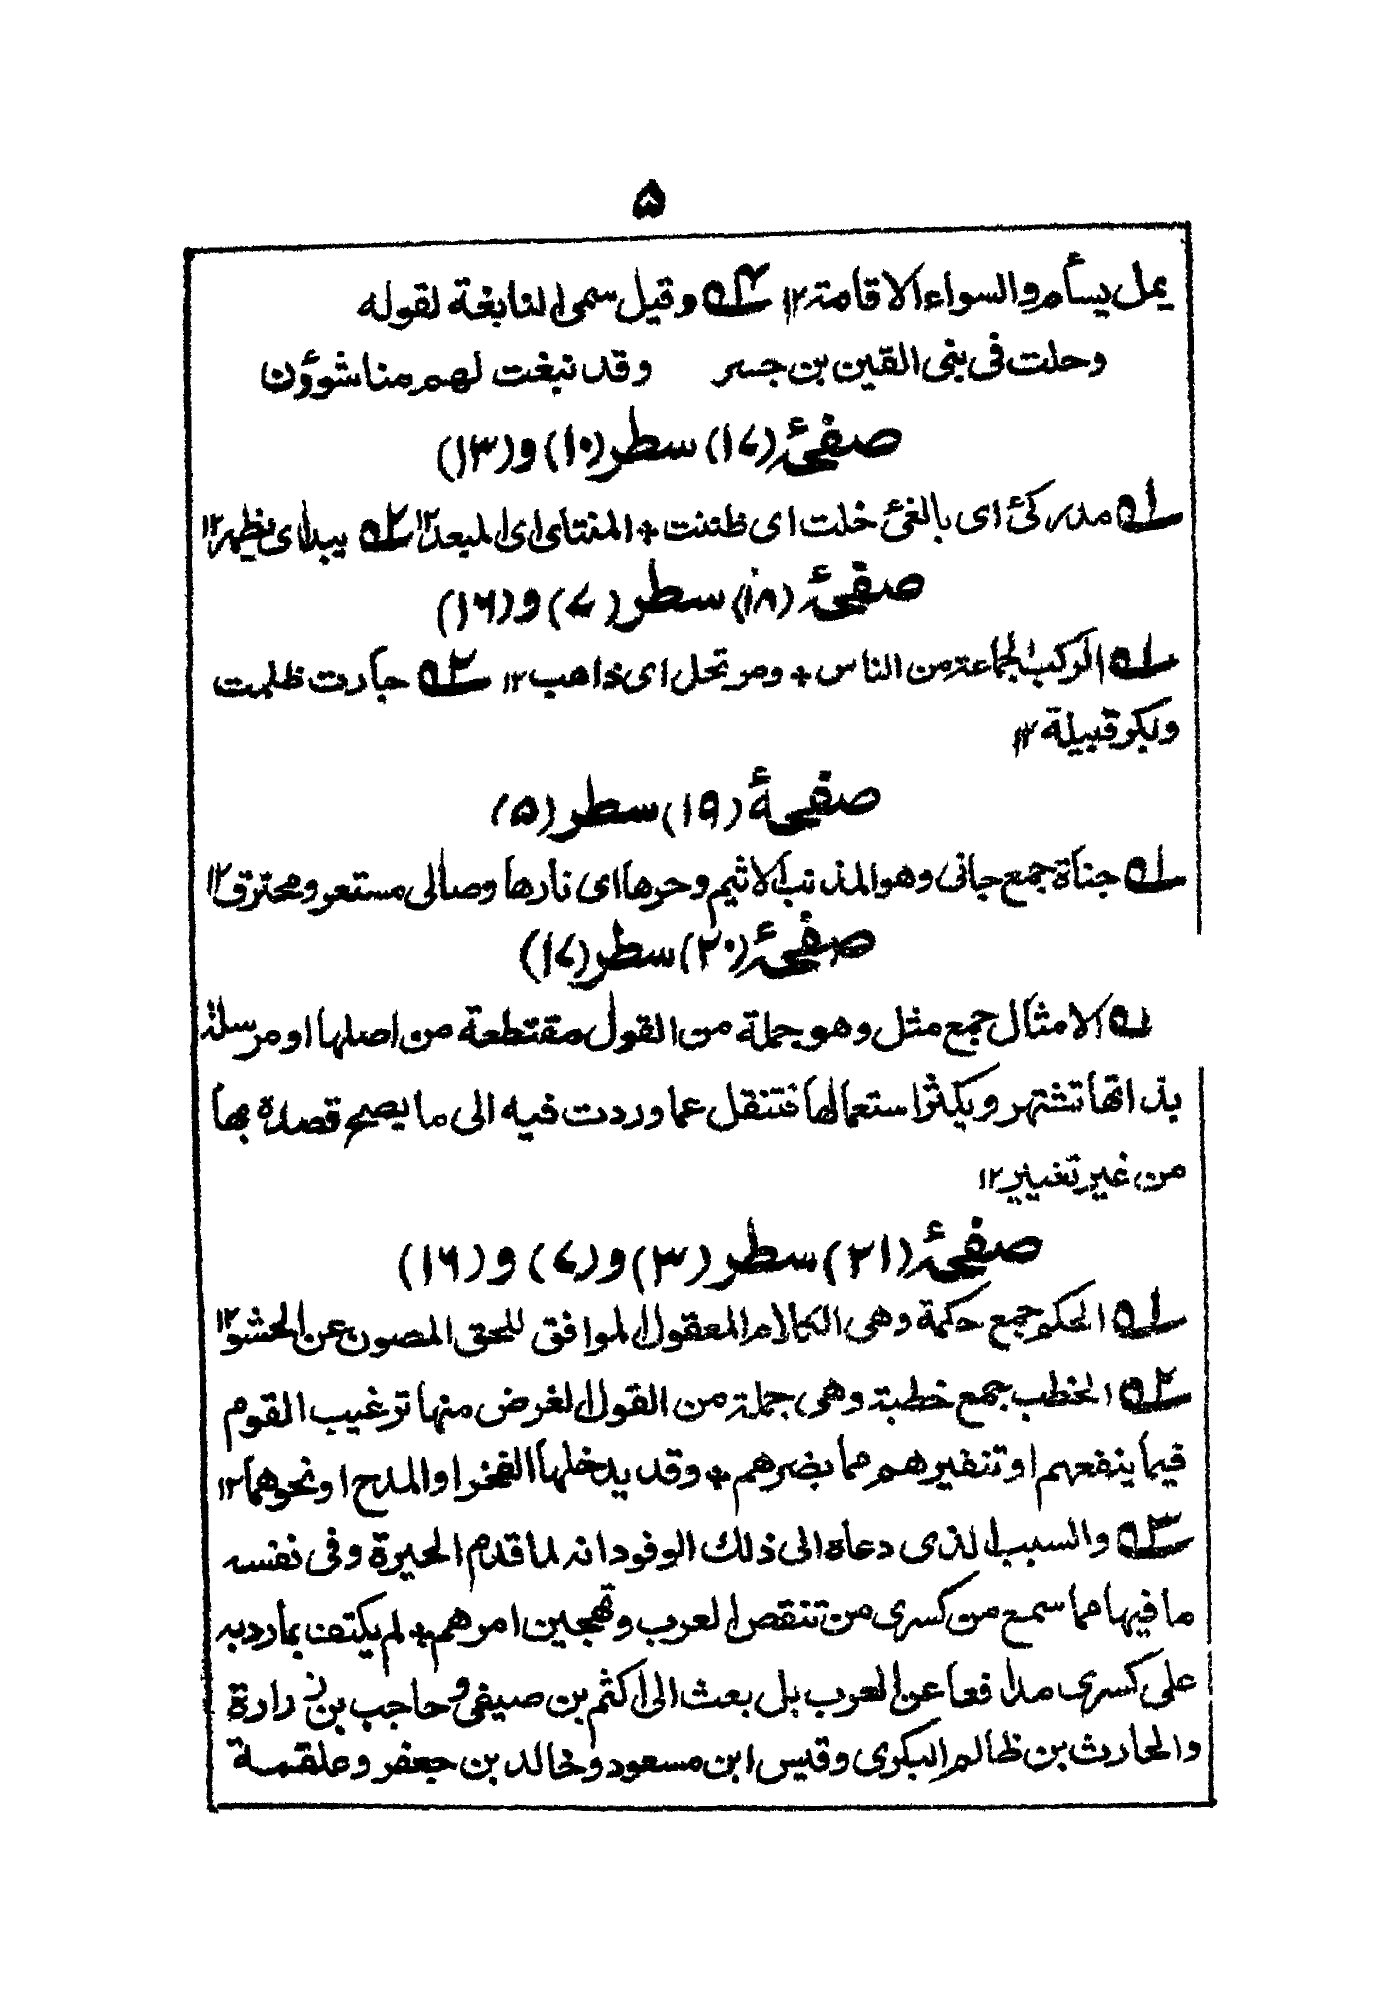 ۵
يمل يسأم والسواء الاقامة ۱۲ ۴ه وقيل سمى النابغة لقوله
وحلت فى بنى القين بن جسر وقد نبغت لهم منا شوؤن
صفحۂ (۱۷) سطر (۱۰) و (۱۳)
۱ه مدركئ اى بالغئ خلت اى ظننت + المنتاى اى المبعد ۱۲ ۲ه يبدا اى يظهر ۱۲
صفحۂ (۱۸) سطر (۷) و (۱۶)
۱ه الركب الجماعة من الناس + ومرتحل اى ذاهب ۱۲ ۲ه جارت ظلمت
وبكر قبيلة ۱۲
صفحۂ (۱۹) سطر (۵)
۱ه جناة جمع جانى وهو المذنب الاثيم وحرها اى نارها وصالى مستعر ومحترق ۱۲
صفحۂ (۲۰) سطر (۱۷)
ه الامثال جمع مثل وهو جملة من القول مقتطعة من اصلها او مرسلة
بذاتها تشتهر ويكثر استعمالها فتنقل عما وردت فيه الى ما يصح قصده بها
من غير تغيير ۱۲
صفحۂ (۲۱) سطر (۳) و (۷) و (۱۶)
۱ه الحكم جمع حكمة وهى الكلام المعقول الموافق للحق المصون عن الحشو ۱۲
۲ه الخطب جمع خطبة وهى جملة من القول الغرض منها ترغيب القوم
فيما ينفعهم او تنفيرهم مما يضرهم + وقد يدخلها الفخر او المدح او نحوهما ۱۲
۳ه والسبب الذى دعاه الى ذلك الوفود انه لما قدم الحيرة وفى نفسه
ما فيها مما سمع من كسرى من تنقص العرب وتهجين امرهم + لم يكتف بما رد به
على كسرى مدافعا عن العرب بل بعث الى اكثم بن صيفى وحاجب بن زرارة
والحارث بن ظالم البكرى وقيس ابن مسعود وخالد بن جعفر وعلقمة